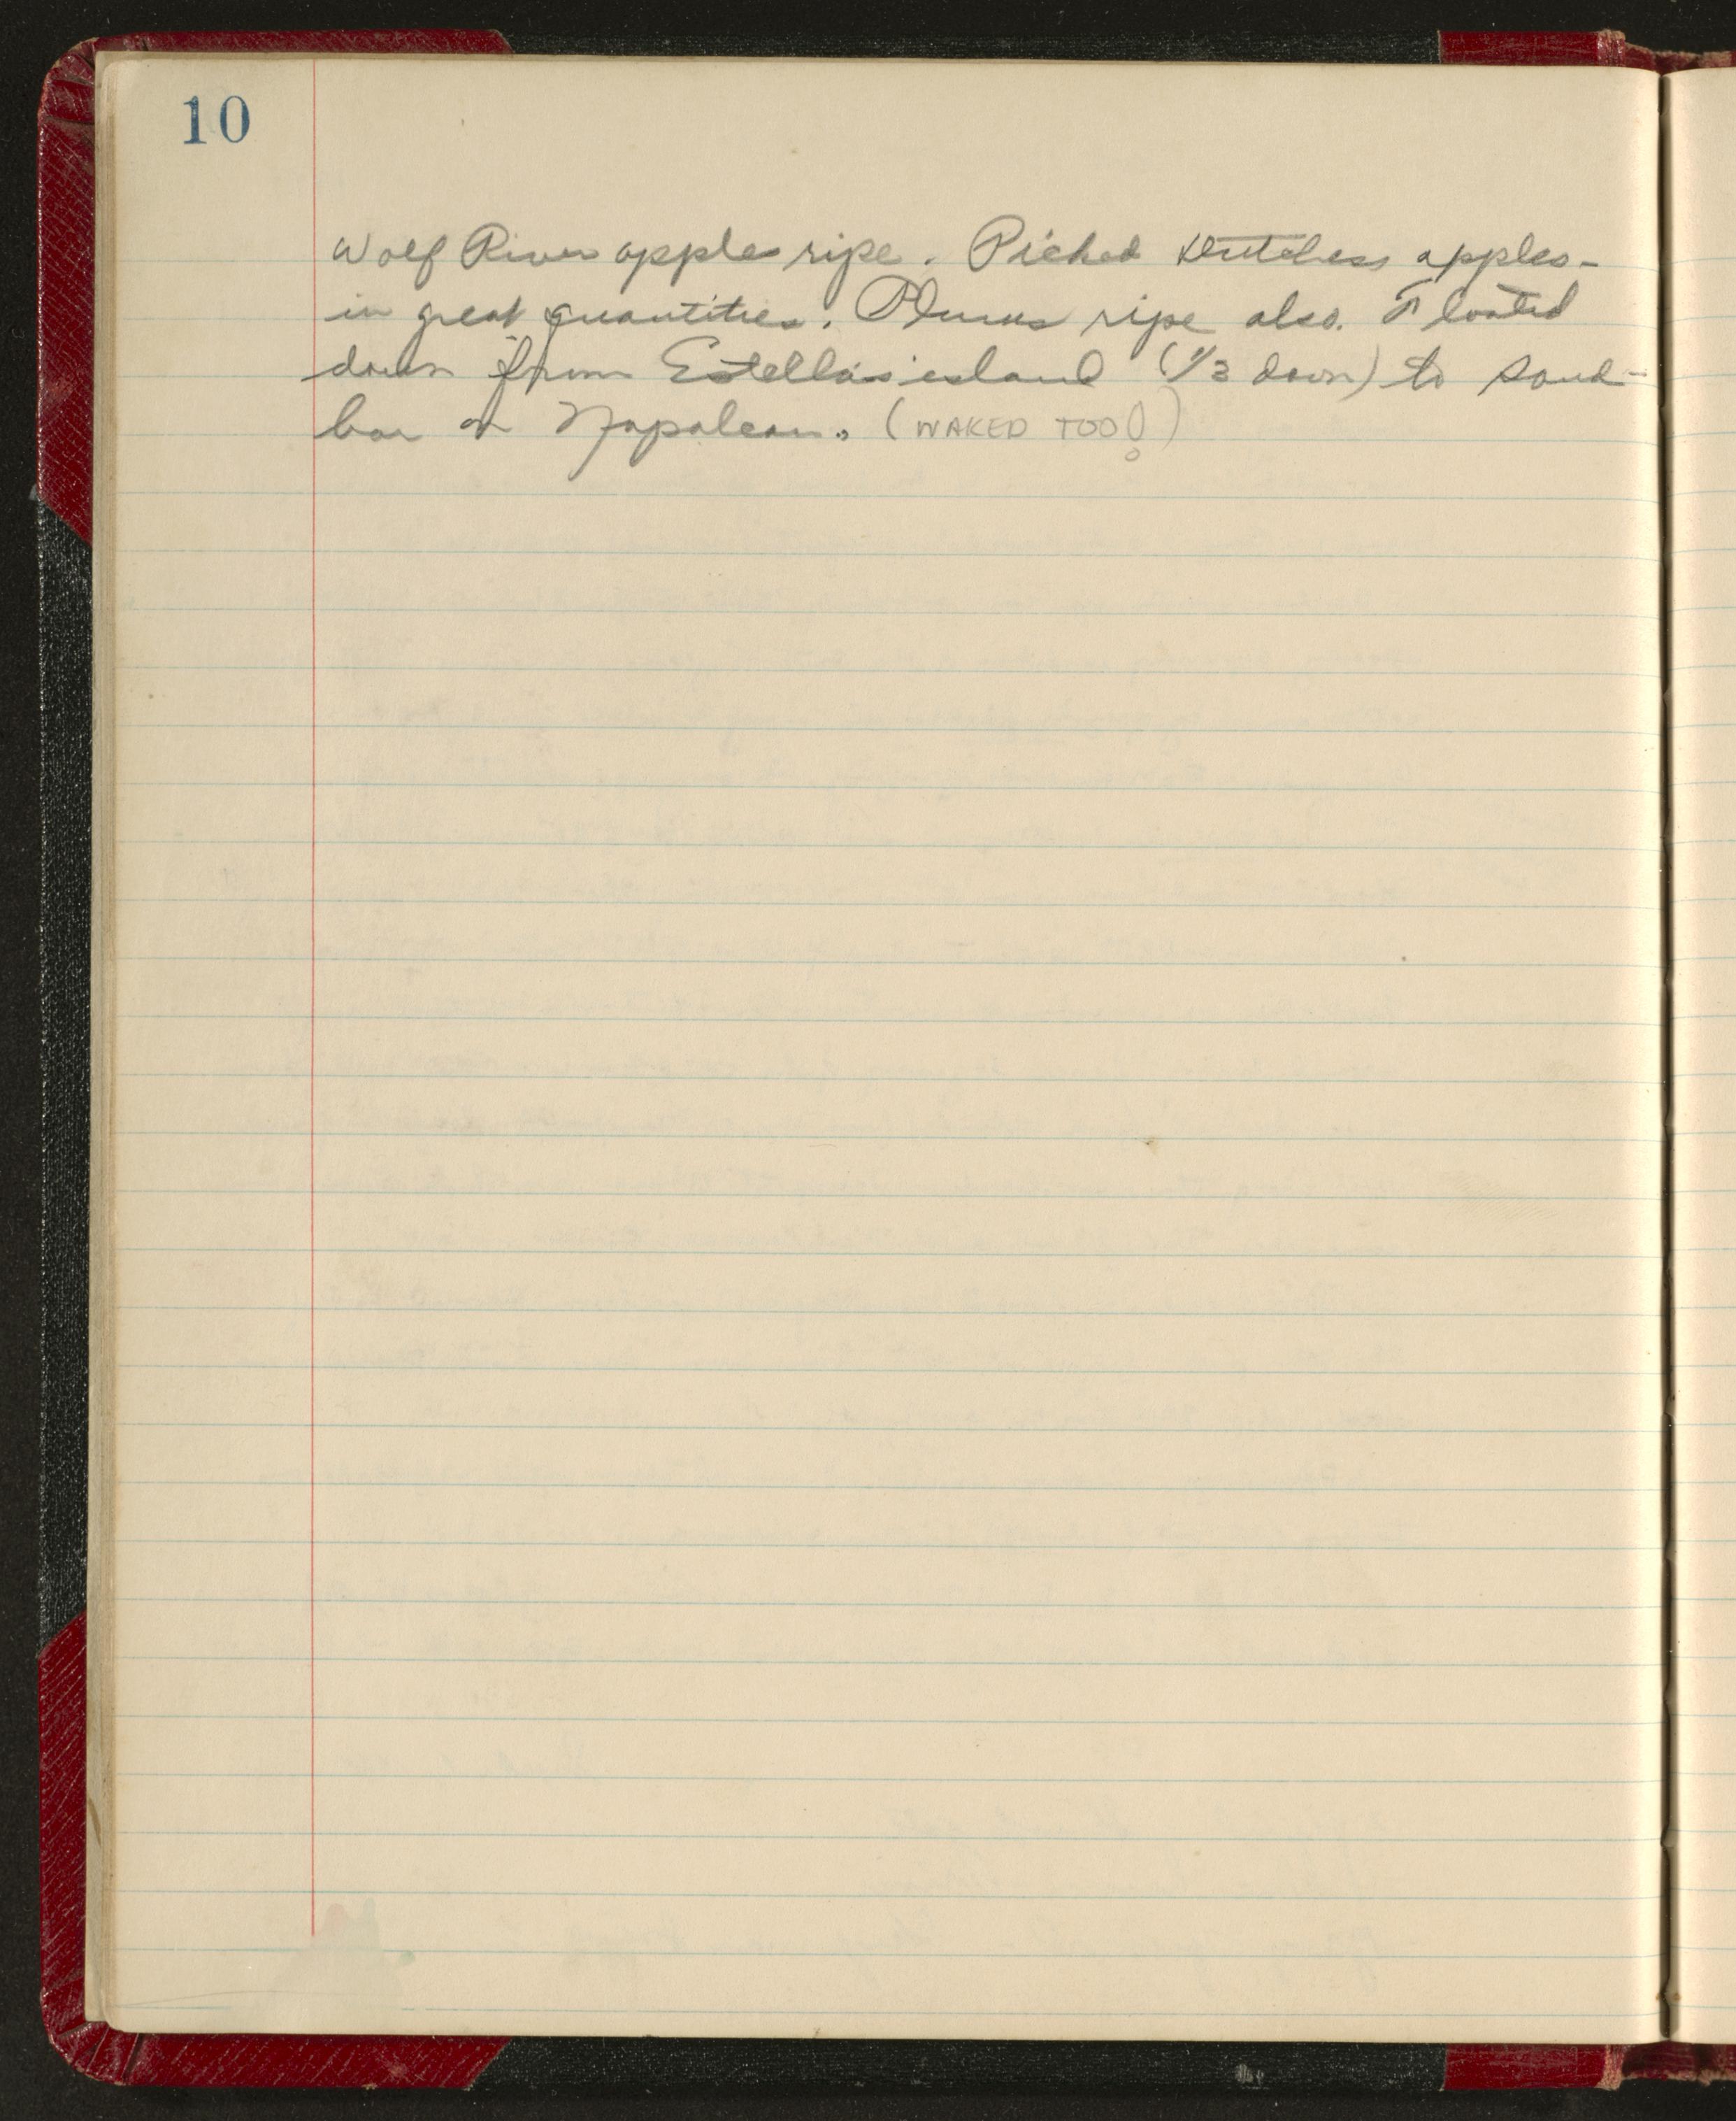 10
Wolf River apples ripe. Picked Dutchess apples -
in great quantities. Plums ripe also. Floated
down from Estella's island (1/3 down) to sand-
bar on Napolean. (WAKED TOO!)